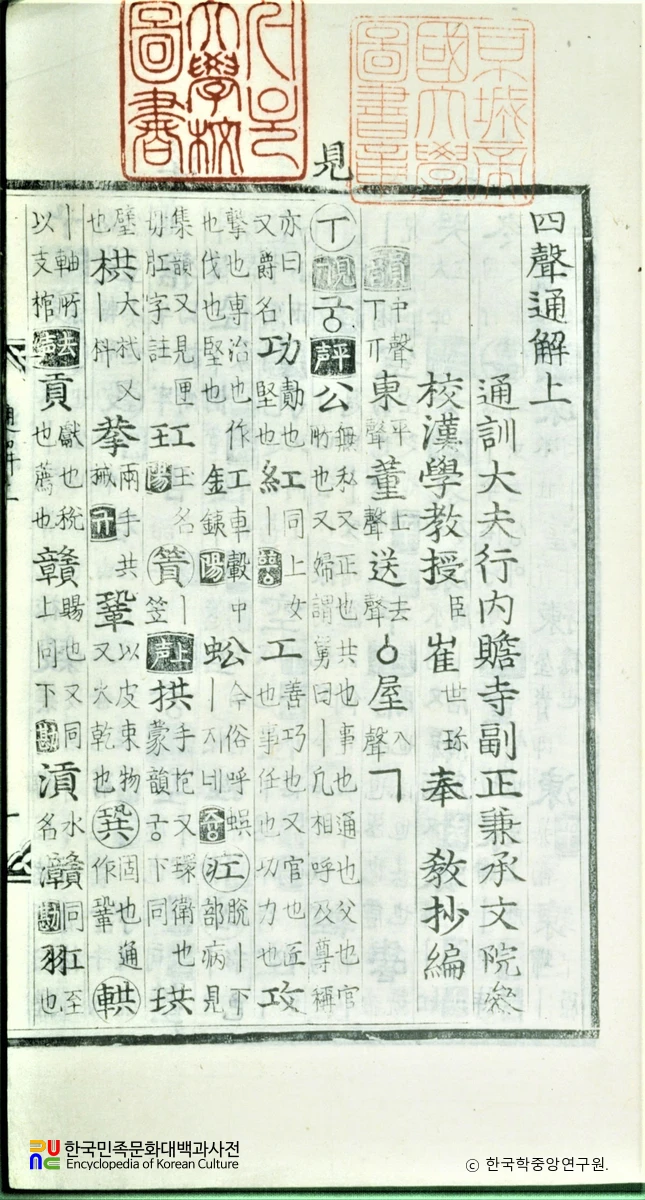 見
四聲通解上
通訓大夫行內贍寺副正兼承文院參
校漢學教授臣崔世珍奉 敎抄編
韻中聲ㅜㅠ東平聲董上聲送去聲ㆁ屋入聲ㄱ
視궁平声公無私又正也共也事也通也父也官所也又婦謂舅曰丨凡相呼及尊稱
亦曰丨又爵名功勳也堅也紅同上女丨工善巧也又官也匠也事任也功力也攻
擊也專治也作也伐也堅也工車轂中金銕陽蚣今俗呼蜈丨지네疘脫丨下部病見
集韻又見匣切肛字註玒玉名陽篢丨笠上声拱手抱又環衛也蒙韻궁下同珙
璧也栱大杙又丨枓拲兩手共械廾鞏以皮束物又火乾也㧬固也通作鞏輁
丨軸所以支棺去声貢獻也稅也薦也贛賜也又同上同下勘水名灨同勘羾至也
한국민족문화대백과사전
Encyclopedia of Korean Culture
ⓒ 한국학중앙연구원.